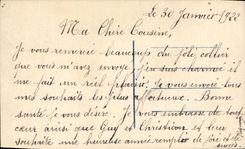 Le 30 Janvier 1922
Ma Chère Cousine,
Je vous remercie beaucoup du joli collier
que vous m'avez envoyé j'en suis charmée il
me fait un réel plaisir. Je vous envoie tous
mes souhaits les plus affectueux. Bonne
santé je vous désire. Je vous embrasse de tout
cœur ainsi que Guy et Christiane et vous
souhaite une heureuse année remplie de joie et de